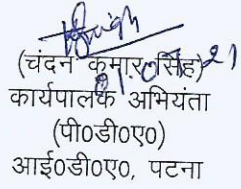 (चंदन कुमार सिंह)
कार्यपालक अभियंता
(पी०डी०ए०)
आई०डी०ए०, पटना